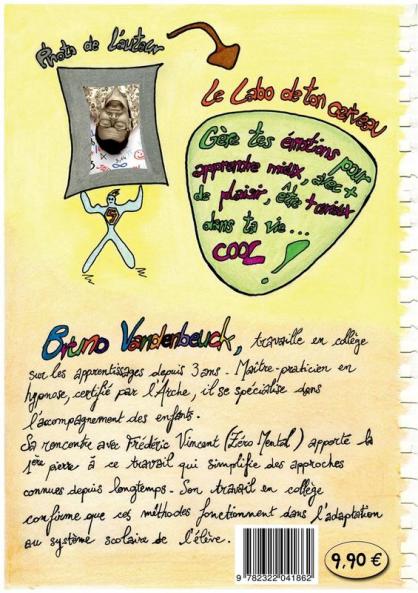 Photo de l'auteur
Le Labo de ton cerveau
Gère tes émotions pour
apprendre mieux, avec +
de plaisir, être + mieux
dans ta vie...
COOL !
Bruno Vandenbeuck, travaille en collège
sur les apprentissages depuis 3 ans. Maître-praticien en
hypnose, certifié par l'Arche, il se spécialise dans
l'accompagnement des enfants.
Sa rencontre avec Frédéric Vincent (Zéro Mental) apporte la
1ère pierre à ce travail qui simplifie des approches
connues depuis longtemps. Son travail en collège
confirme que ces méthodes fonctionnent dans l'adaptation
au système scolaire de l'élève.
9 782322 041862
9,90 €